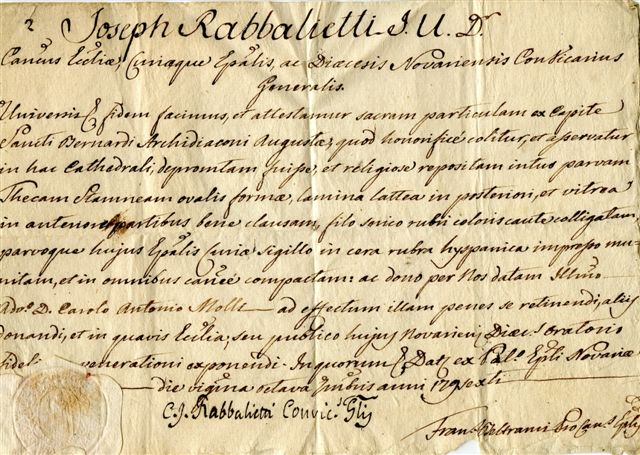 2
Joseph Rabbalietti J. U. Dr
Cancus Eccliæ, Curiæque Epālis, ac Diæcesis Novariensis Con Vicarius
Generalis.
Universis & fidem facimus, et attestamur sacram particulam ex Capite
Sancti Bernardi Archidiaconi Augustæ, quod honorificè colitur, et asservatur
in hac Cathedrali, depromtam fuisse, et religiose repositam intus parvam
Thecam stamneam ovalis formæ, lamina lattea in posteriori, et vitrea
in anteriore partibus bene clausam, filo serico rubri coloris caute colligatam
parvoque hujus Epālis Curiæ Sigillo in cera rubra hyspanica impresso mu-
nitam, et in omnibus compactam: ac dono per Nos datam Illmo
Advo D. Carolo Antonio Molli ad effectum illam penes se retinendi, aliis
donandi, et in quavis Ecclia, seu publico hujus Novarien, Diæc.s oratorio
fideli venerationi exponendi. In quorum & Dat, ex Pal.o Epli Novariæ
die vigma octava anni
C. J. Rabbalietti Convic.s Glis
Fran.s Beltrami Pro Can.s Eplis